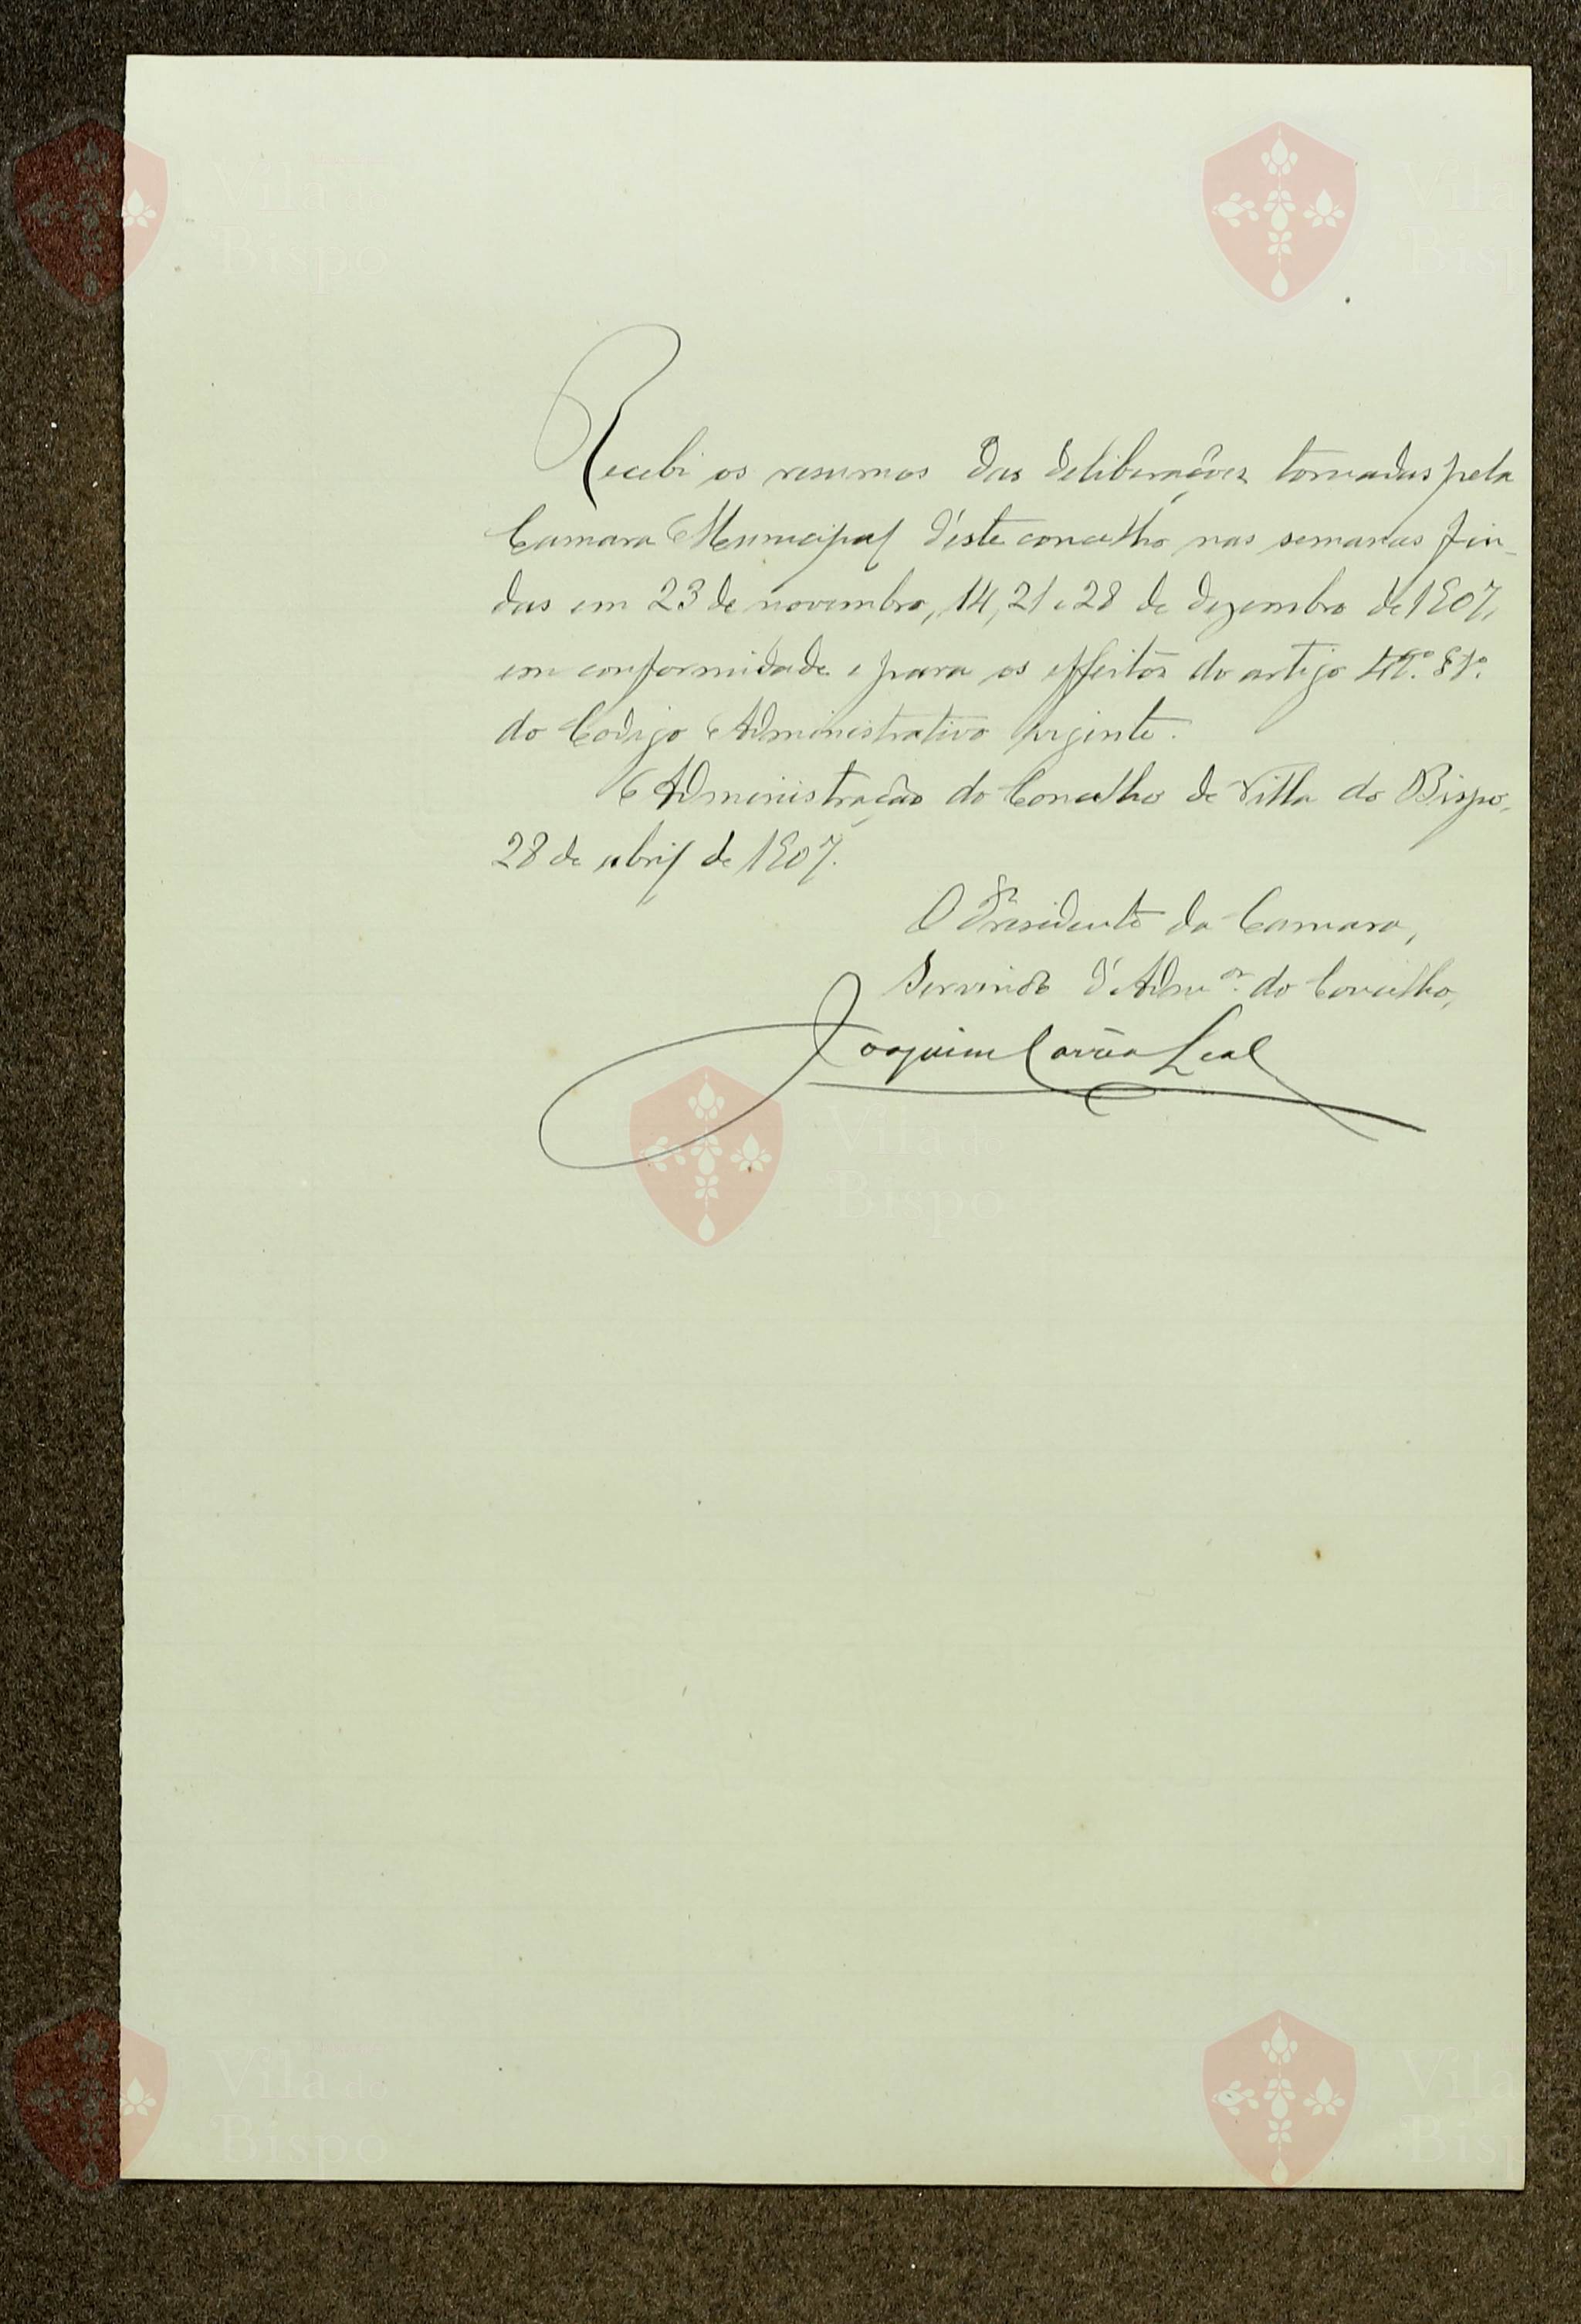 Vila do
Bispo
Vila
Bisp
Recebi os resumos das deliberações tomadas pela
Camara Municipal d'este concelho nas semanas fin-
das em 23 de novembro, 14, 21 e 28 de dezembro de 1907,
em conformidade e para os effeitos do artigo § 1º.
do Codigo Administrativo vigente.
Administração do Concelho de Villa do Bispo,
28 de abril de 1907.
O Presidente da Camara,
Servindo d'Admor. do Concelho,
Joaquim Corrêa Leal
Vila do
Bispo
Vila do
Bispo
Vila
Bisp